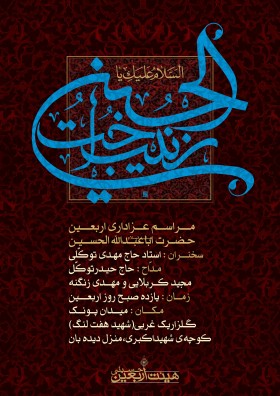 السلام علیک یا
الحسین
زینب اخت
مراسم عزاداری اربعین
حضرت اباعبدالله الحسین
سخنران : استاد حاج مهدی توکلی
مداح : حاج حیدرتوکل
مجید کربلایی و مهدی زنگنه
زمان : یازده صبح روز اربعین
مکان : میدان پونک
گلزاریک غربی(شهید هفت لنگ)
کوچه‌ی شهیداکبری،منزل دیده بان
هیئت اربعین